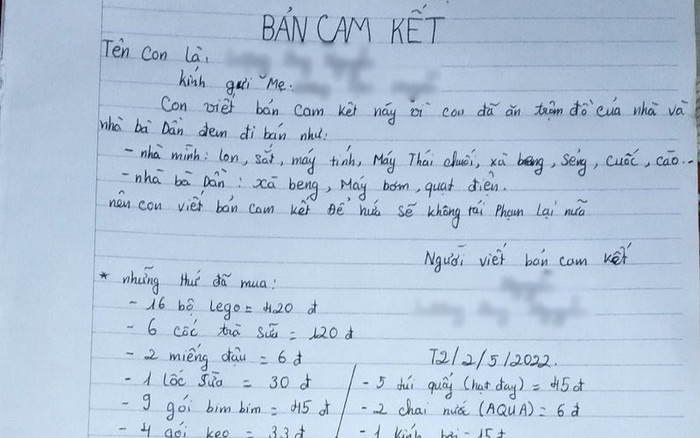 BẢN CAM KẾT
Tên Con là,
kính gửi Mẹ.
Con viết bản cam kết này vì con đã ăn trộm đồ của nhà và
nhà bà Dần đem đi bán như:
- nhà mình: lon, sắt, máy tính, Máy Thái chuối, xà beng, sẻng, cuốc, cào...
- nhà bà Dần: xà beng, Máy bơm, quạt điện.
nên con viết bản cam kết Để hứa sẽ không tái Phạm lại nữa
Người viết bản cam kết
* những thứ đã mua:
- 16 bộ lego = 420 đ
- 6 cốc trà sữa = 120 đ
- 2 miếng đậu = 6 đ
T2/2/5/2022.
- 1 lốc sữa = 30 đ
- 5 túi quẩy (hạt đay) = 45 đ
- 9 gói bim bim = 45 đ
- 2 chai nước (AQUA) = 6 đ
- 4 gói kẹo = 33 đ
- 1 kính = 15 đ